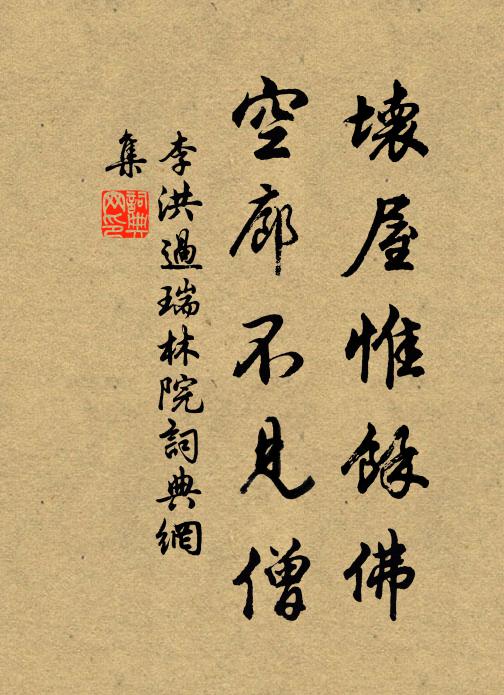 壞屋惟餘佛
空廊不見僧
李洪過瑞林院詞典網
集
詞典
网印